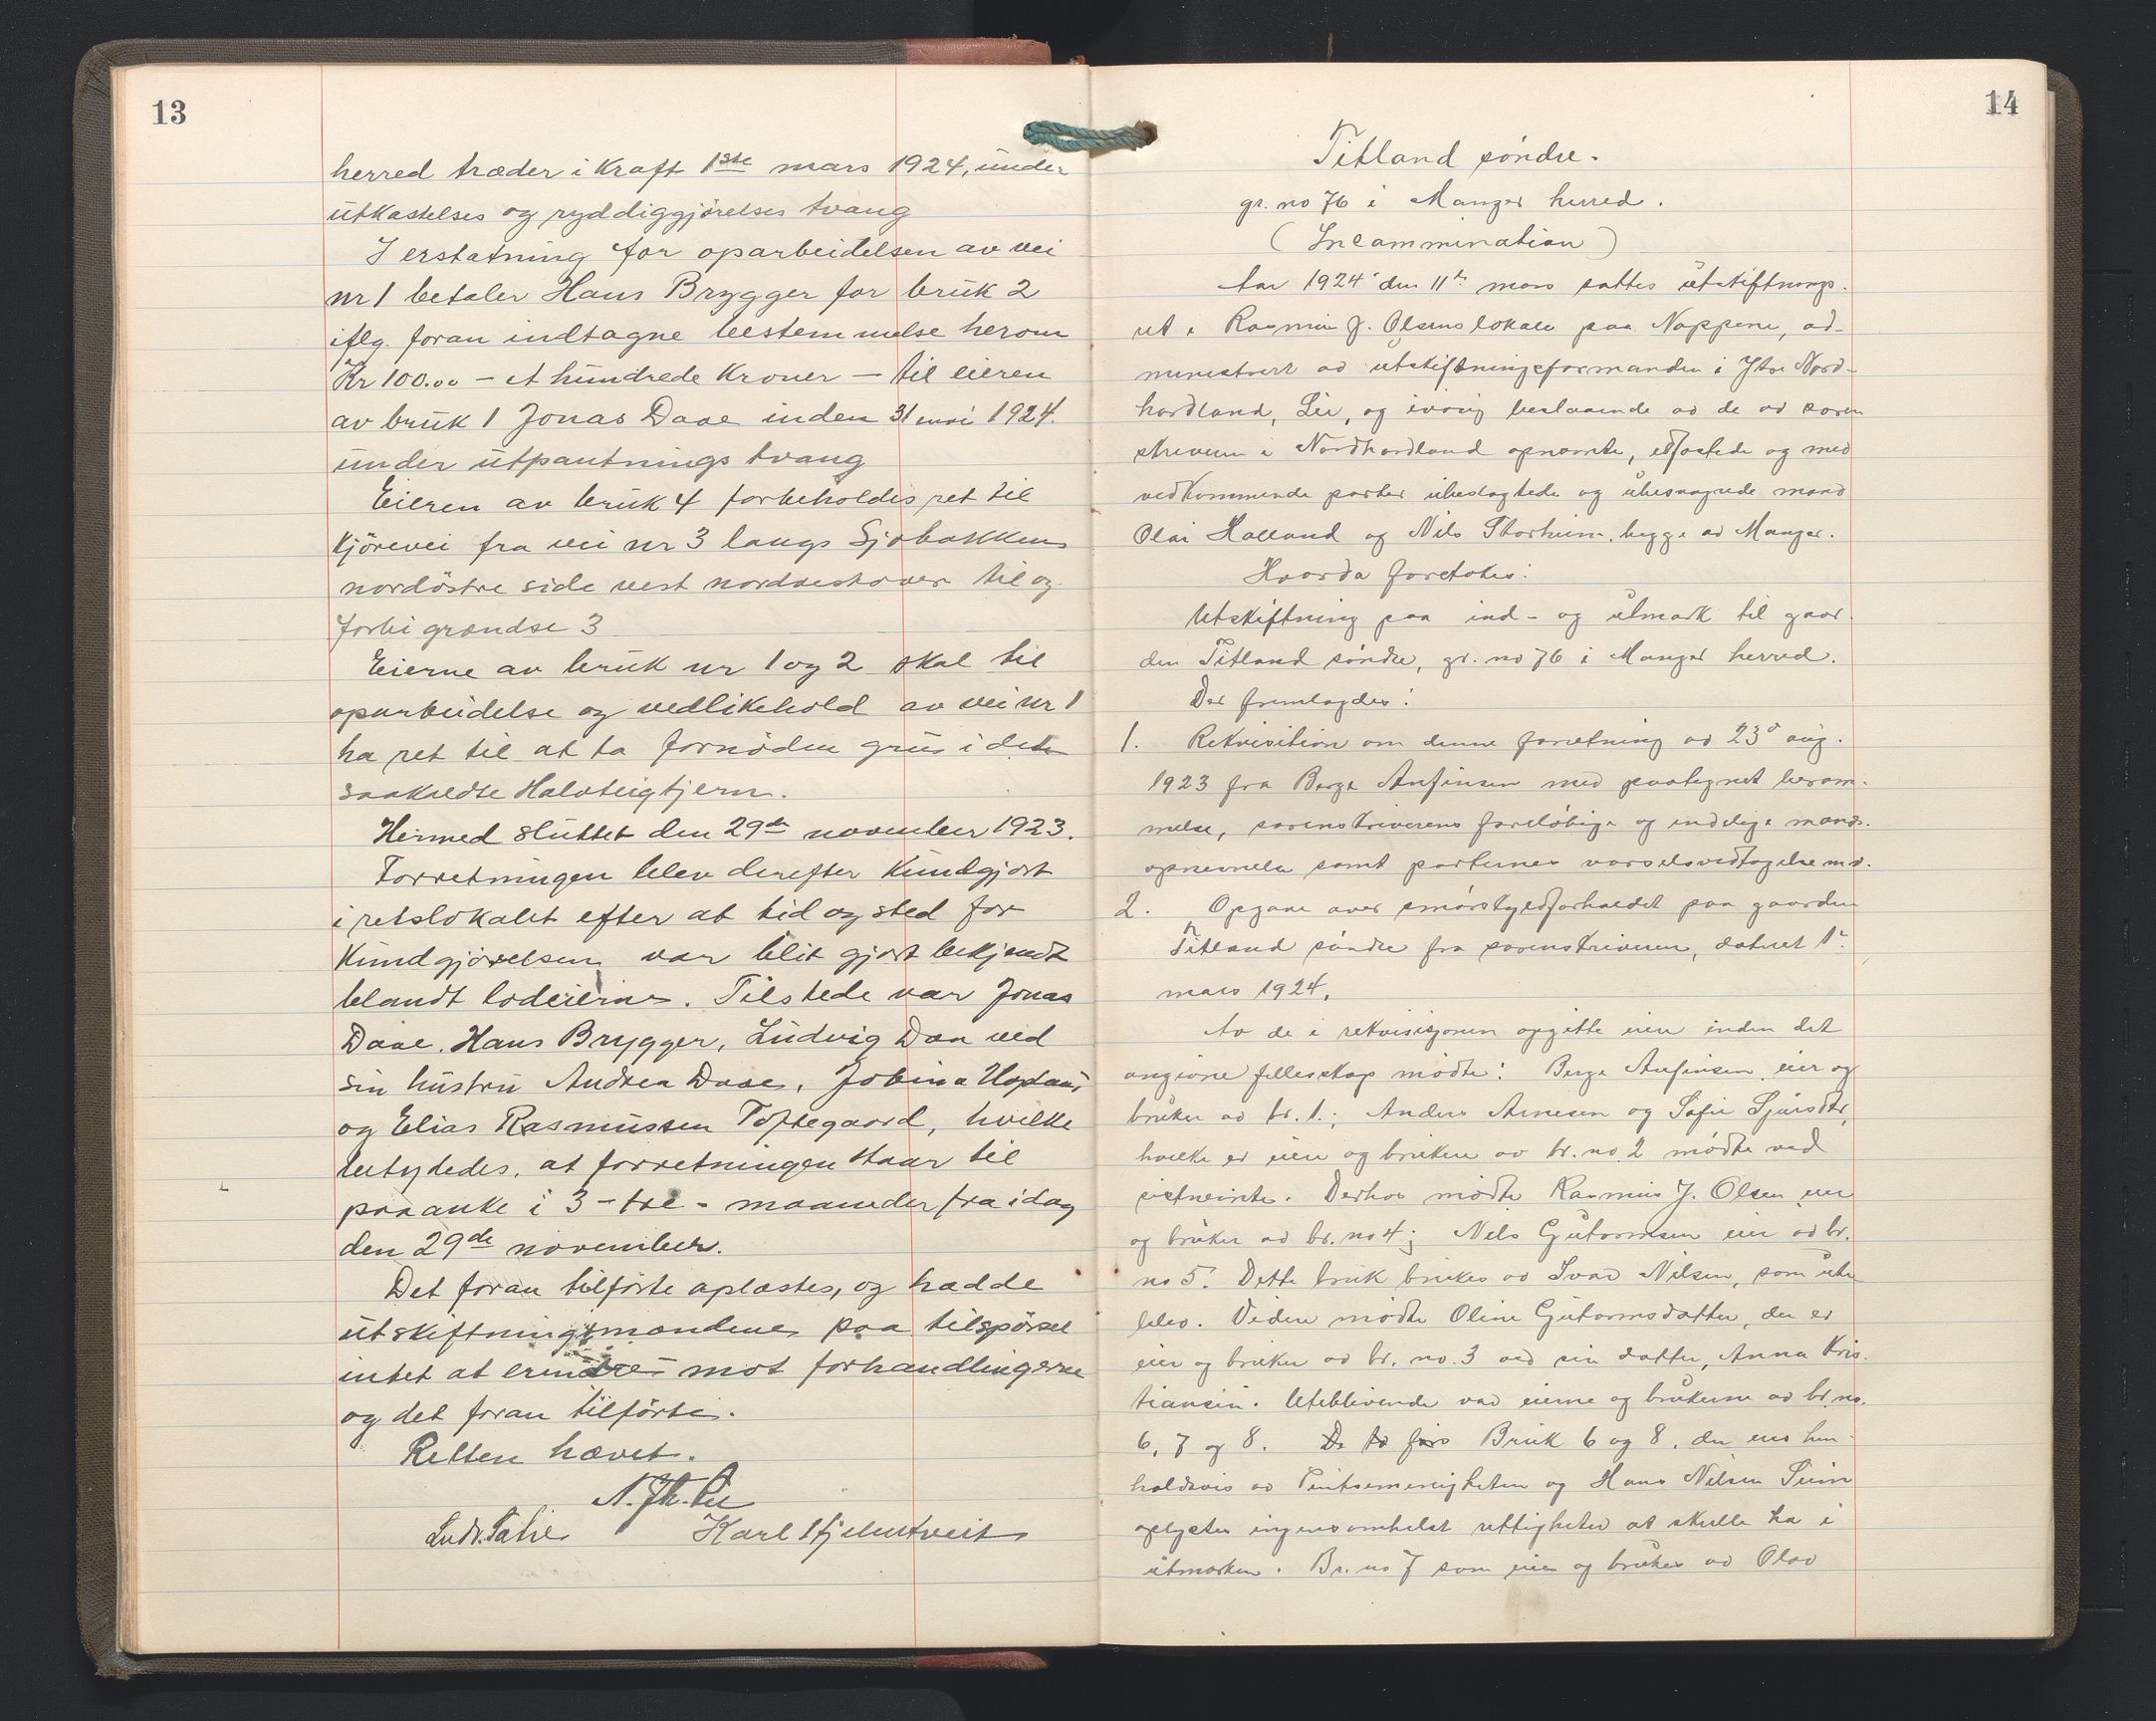 13
herred træder i kraft 1ste mars 1924, under
utkastelses og ryddiggjørelses tvang
I erstatning for oparbeidelsen av vei
nr 1 betaler Hans Brygger for bruk 2
iflg. foran indtagne bestemmelse herom
Kr 100.00 - et hundrede kroner - til eieren
av bruk 1 Jonas Daae inden 31 mai 1924.
under utpantnings tvang
Eieren av bruk 4 forbeholdes ret til
kjörevei fra vei nr 3 langs Sjobakkens
nordöstre side vest nordvestover til og
forbi grændse 3
Eierne av bruk nr 1 og 2 skal til
oparbeidelse og vedlikehold av vei nr 1
ha ret til at ta fornöden grus i det
saakaldte Halvteigtjern.
Hermed sluttet den 29de november 1923.
Forretningen blev derefter kundgjort
i retslokalet efter at tid og sted for
kundgjørelsen var blit gjort bekjendt
blandt lodeierne. Tilstede var Jonas
Daae, Hans Brygger, Ludvig Daa ved
sin hustru Andrea Daae, Jobina
og Elias Rasmussen Toftegaard, hvilke
betydedes, at forretningen staar til
paaanke i 3 - tre - maaneder fra idag
den 29de november.
Det foran tilförte oplæstes, og hadde
utskiftningsmændene paa tilspörsel
intet at erindre mot forhandlingerne
og det foran tilförte.
Retten hævet.
N. Th. Lie
Ludv. Karl Hjelmtveit
14
Titland söndre.
gr. no 76 i Manger herred.
(Incammination)
Aar 1924 den 11te mars sattes utskiftnings-
ret i Rasmus J. Olsens lokale paa Noppene, ad-
ministrert av utskiftningsformanden i Ytre Nord-
hordland, Lie, og iövrig bestaaende av de av soren
skriveren i Nordhordland opnævnte, edfæstede og med
vedkommende parter ubeslegtede og ubesvogrede mænd
Olai Halland og Nils Thorheim, begge av Manger.
Hvorda foretoges:
Utskiftning paa ind- og utmark til gaar-
den Titland söndre, gr. no 76 i Manger herred.
Der fremlagdes:
1. Rekvisition om denne forretning av 23de aug.
1923 fra Berge Anfinsen med paategnet beram-
melse, sorenskriverens foreløbige og endelige mands-
opnevnelse samt parternes varselsvedtagelse m.v.
2. Opgave over smörskyldforholdet paa gaarden
Titland söndre fra sorenskriveren, dateret 1ste
mars 1924.
Av de i rekvisisjonen opgitte eiere inden det
angivne fellesskap mödte: Berge Anfinsen, eier og
bruker av br. 1; Anders Arnesen og Sofie Sjursdtr,
hvilke er eiere og brukere av br. no 2 mödte ved
sistnevnte. Derhos mödte Rasmus J. Olsen eier
og bruker av br. no 4; Nels Gutormsen eier av br.
no 5. Dette bruk brukes av Ivar Nilsen, som ute
blev. Videre mödte Oline Gutormsdatter, der er
eier og bruker av br. no. 3 ved sin datter, Anna Kris-
tiansen. Uteblivende var eierne og brukerne av br. no.
6, 7 og 8. Bruk 6 og 8, der eies hen-
holdsvis av Pintsemenigheten og Hans Nilsen Seim
oplystes ingensomhelst rettigheter at skulle ha i
utmarken. Br. no 7 som eies og brukes av Olav